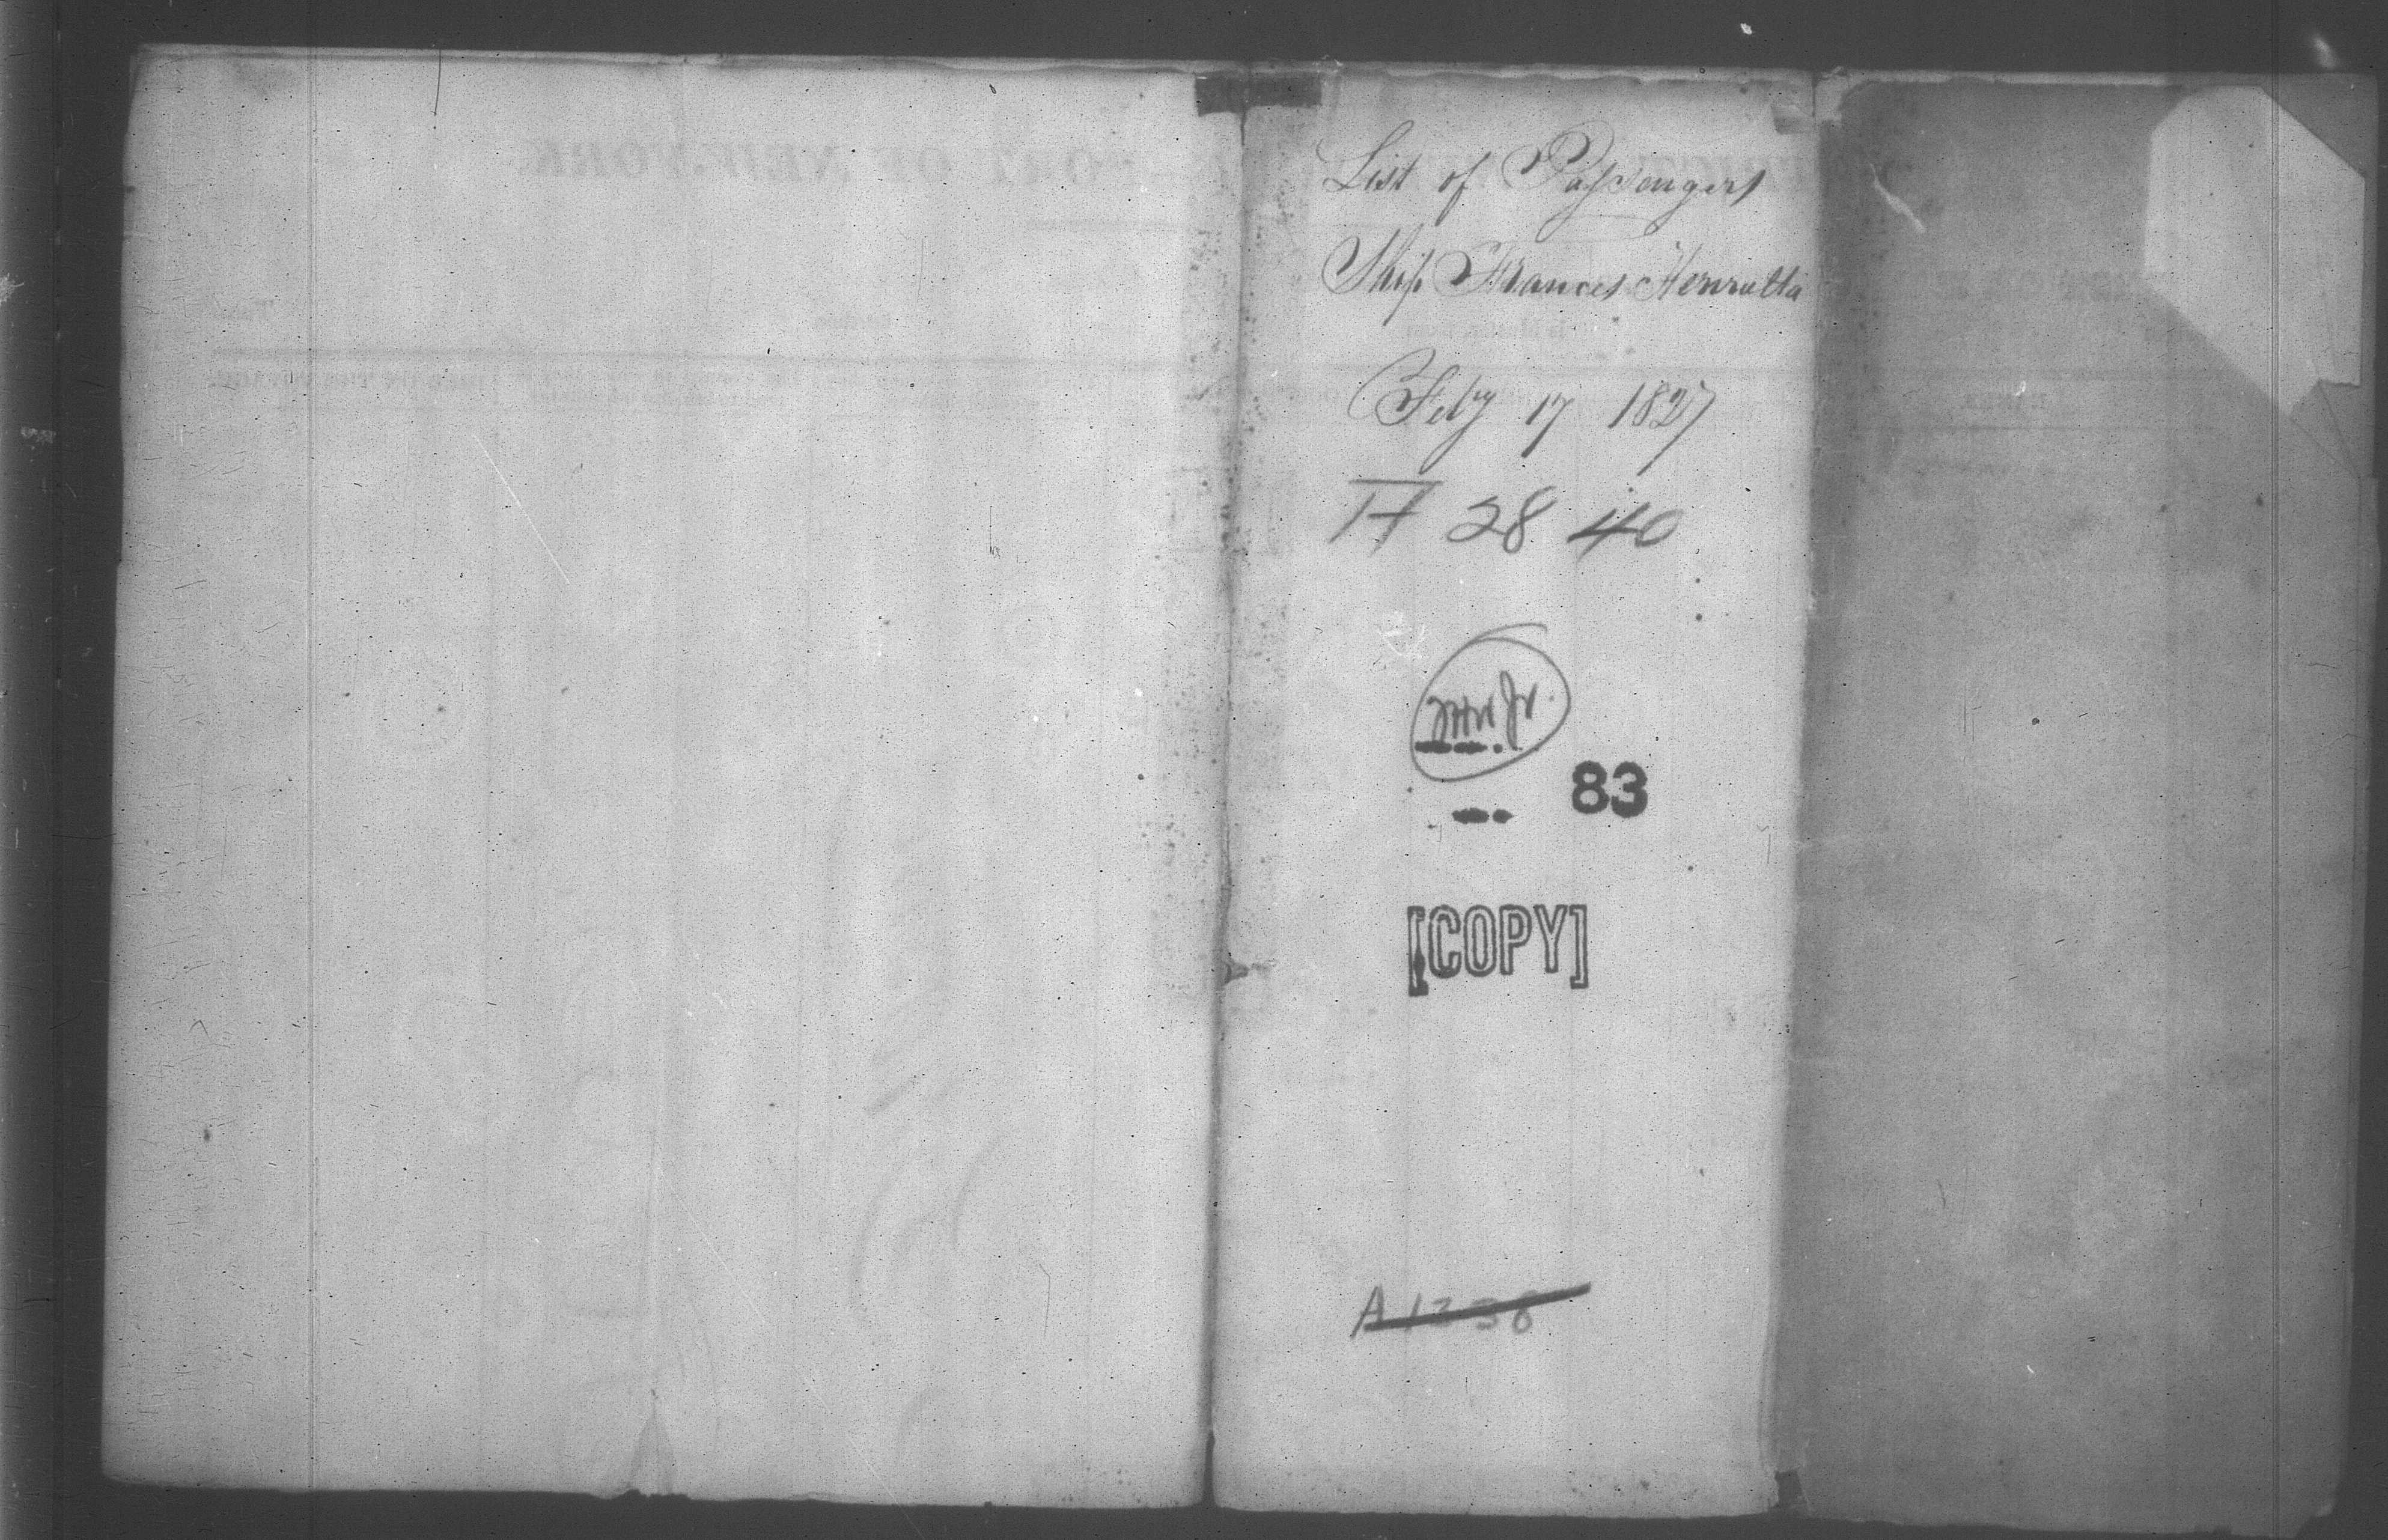 List of Passengers
Ship Frances Henrietta
Feby 17 1827
28 40
83
[COPY]
A 1238